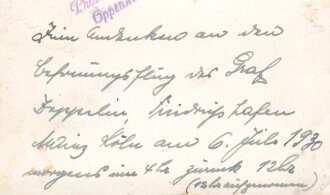 Oppenh
Zum Andenken an den
Befreiungsflug des Graf
Zeppelin, Friedrichshafen
Mainz Köln am 6. Juli 1930
morgens um 4 hr zurück 12 hr